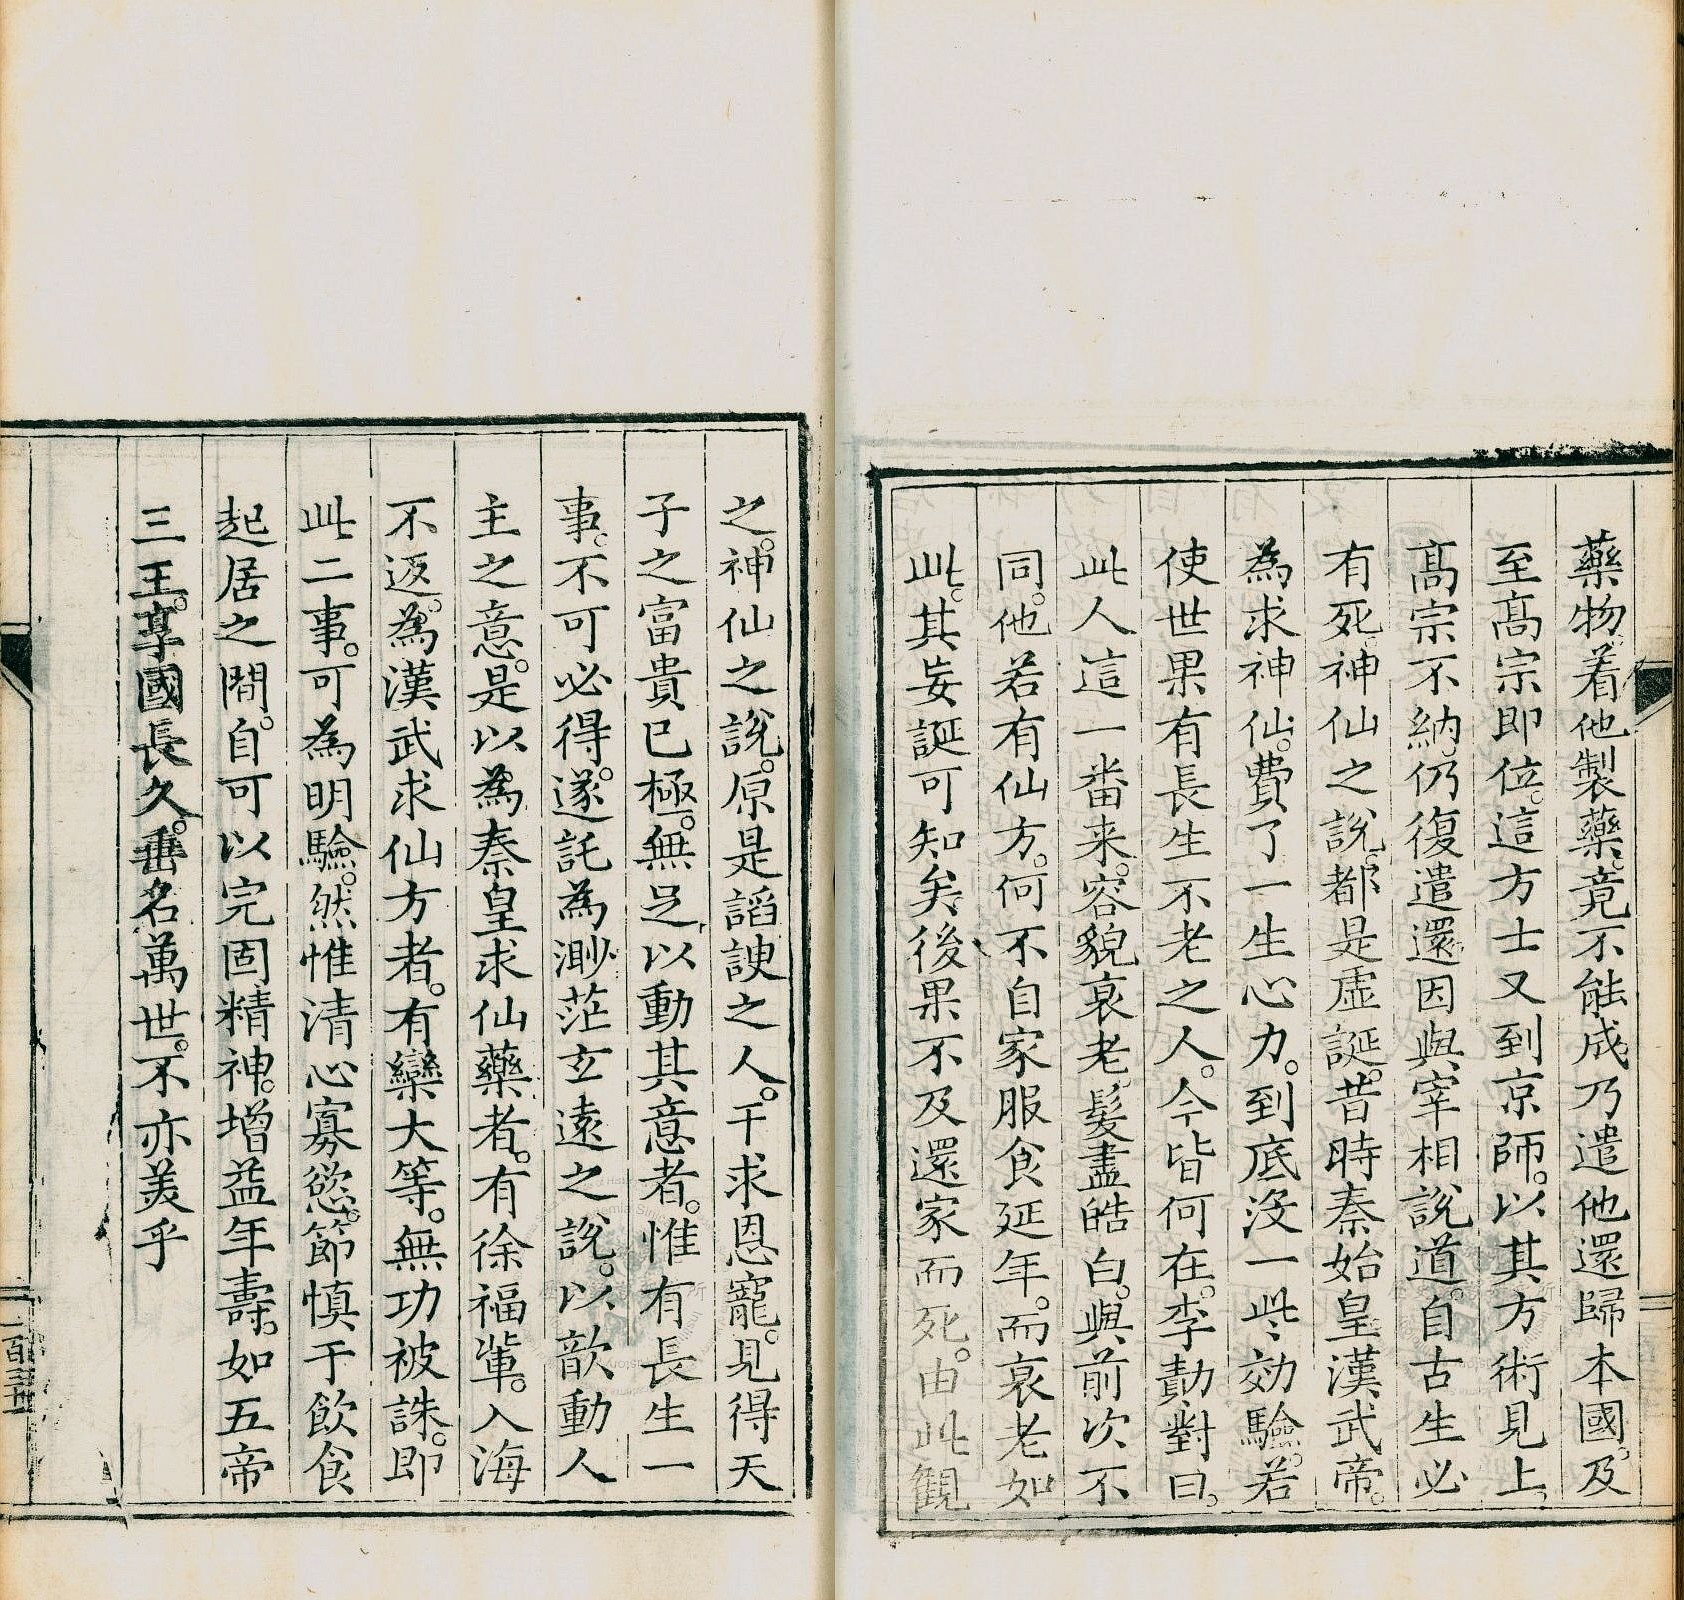 藥物着他製藥竟不能成乃遣他還歸本國及
至高宗即位這方士又到京師以其方術見上
高宗不納仍復遣還因與宰相說道自古生必
有死神仙之說都是虛誕昔時秦始皇漢武帝
為求神仙費了一生心力到底沒一些効驗若
使世果有長生不老之人今皆何在李勣對曰
此人這一番来容貌衰老髮盡皓白與前次不
同他若有仙方何不自家服食延年而衰老如
此其妄誕可知矣後果不及還家而死由此観
之神仙之說原是謟諛之人干求恩寵見得天
子之富貴已極無足以動其意者惟有長生一
事不可必得遂託為渺茫玄遠之說以歆動人
主之意是以為秦皇求仙藥者有徐福軰入海
不返為漢武求仙方者有欒大等無功被誅即
此二事可為明驗然惟清心寡慾節慎于飲食
起居之間自可以完固精神增益年壽如五帝
三王享國長久垂名萬世不亦美乎